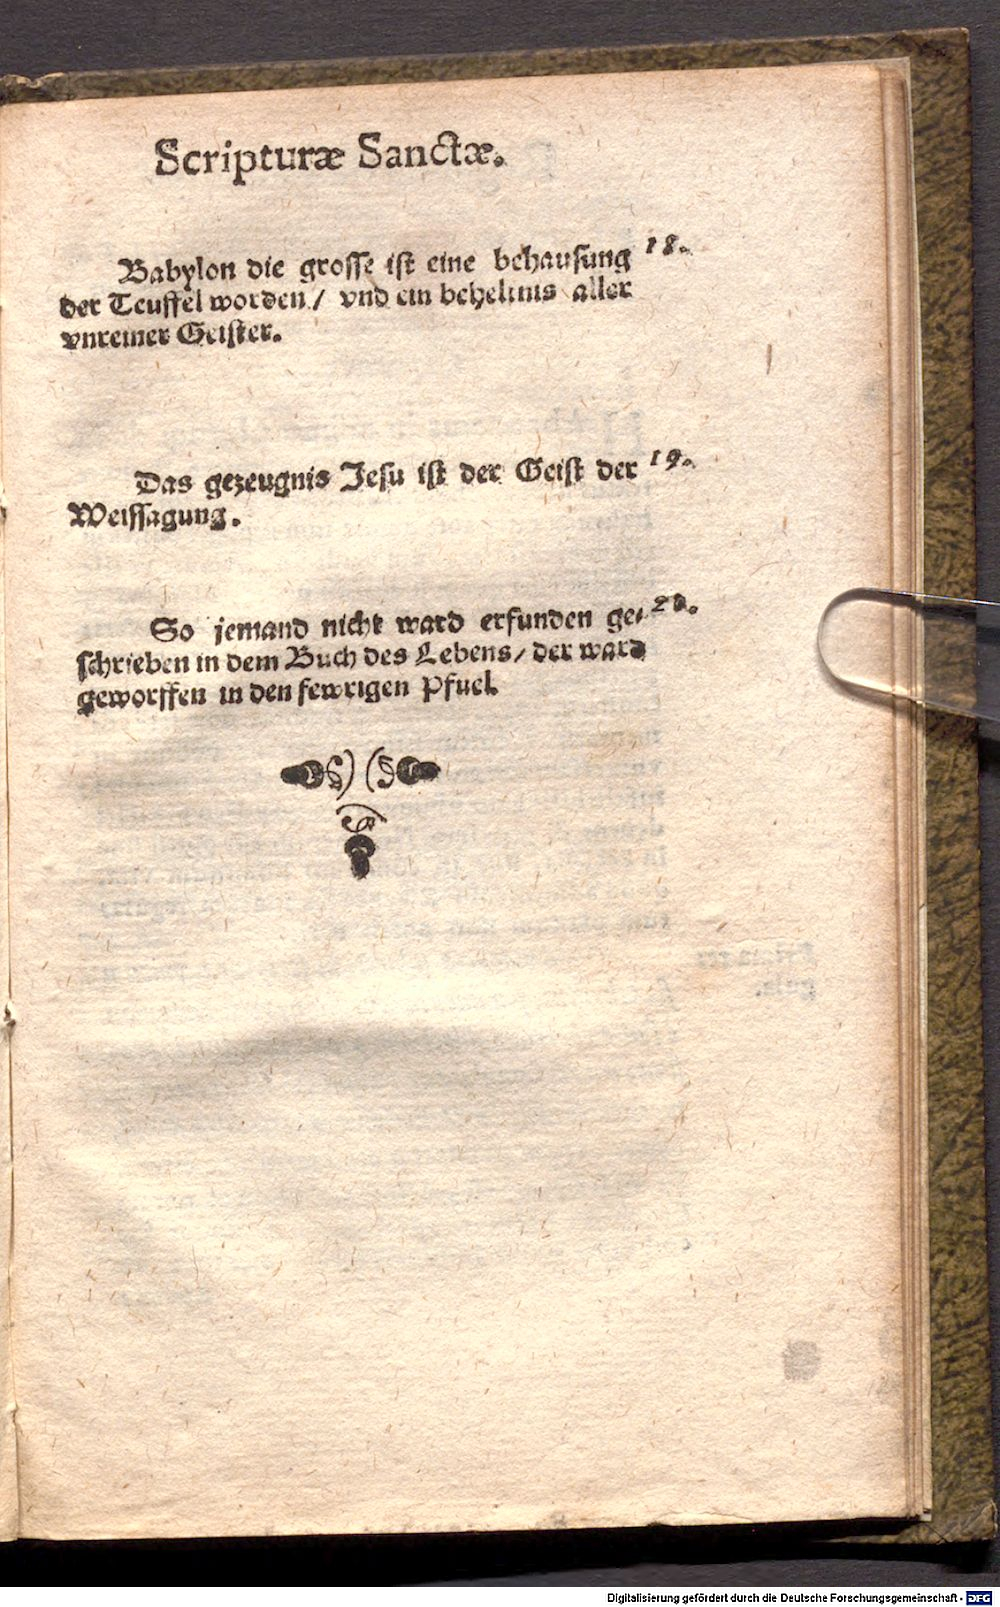 Scripturæ Sanctæ.
Babylon die grosse ist eine behausung 18.
der Teuffel worden / vnd ein beheltnis aller
vnreiner Geister.
Das gezeugnis Jesu ist der Geist der 19.
Weissagung.
So jemand nicht ward erfunden ge- 20.
schrieben in dem Buch des Lebens / der ward
geworffen in den fewrigen Pfuel.
Digitalisierung gefördert durch die Deutsche Forschungsgemeinschaft - DFG